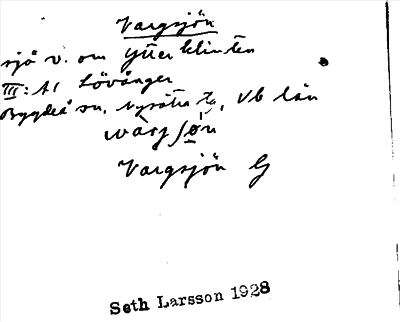 Vargsjön
sjö v. om Ytterklinten
III: A1 Lövånger
Bygdeå sn, Nysätra tg, Vb län
Vargsjön G
Seth Larsson 1928